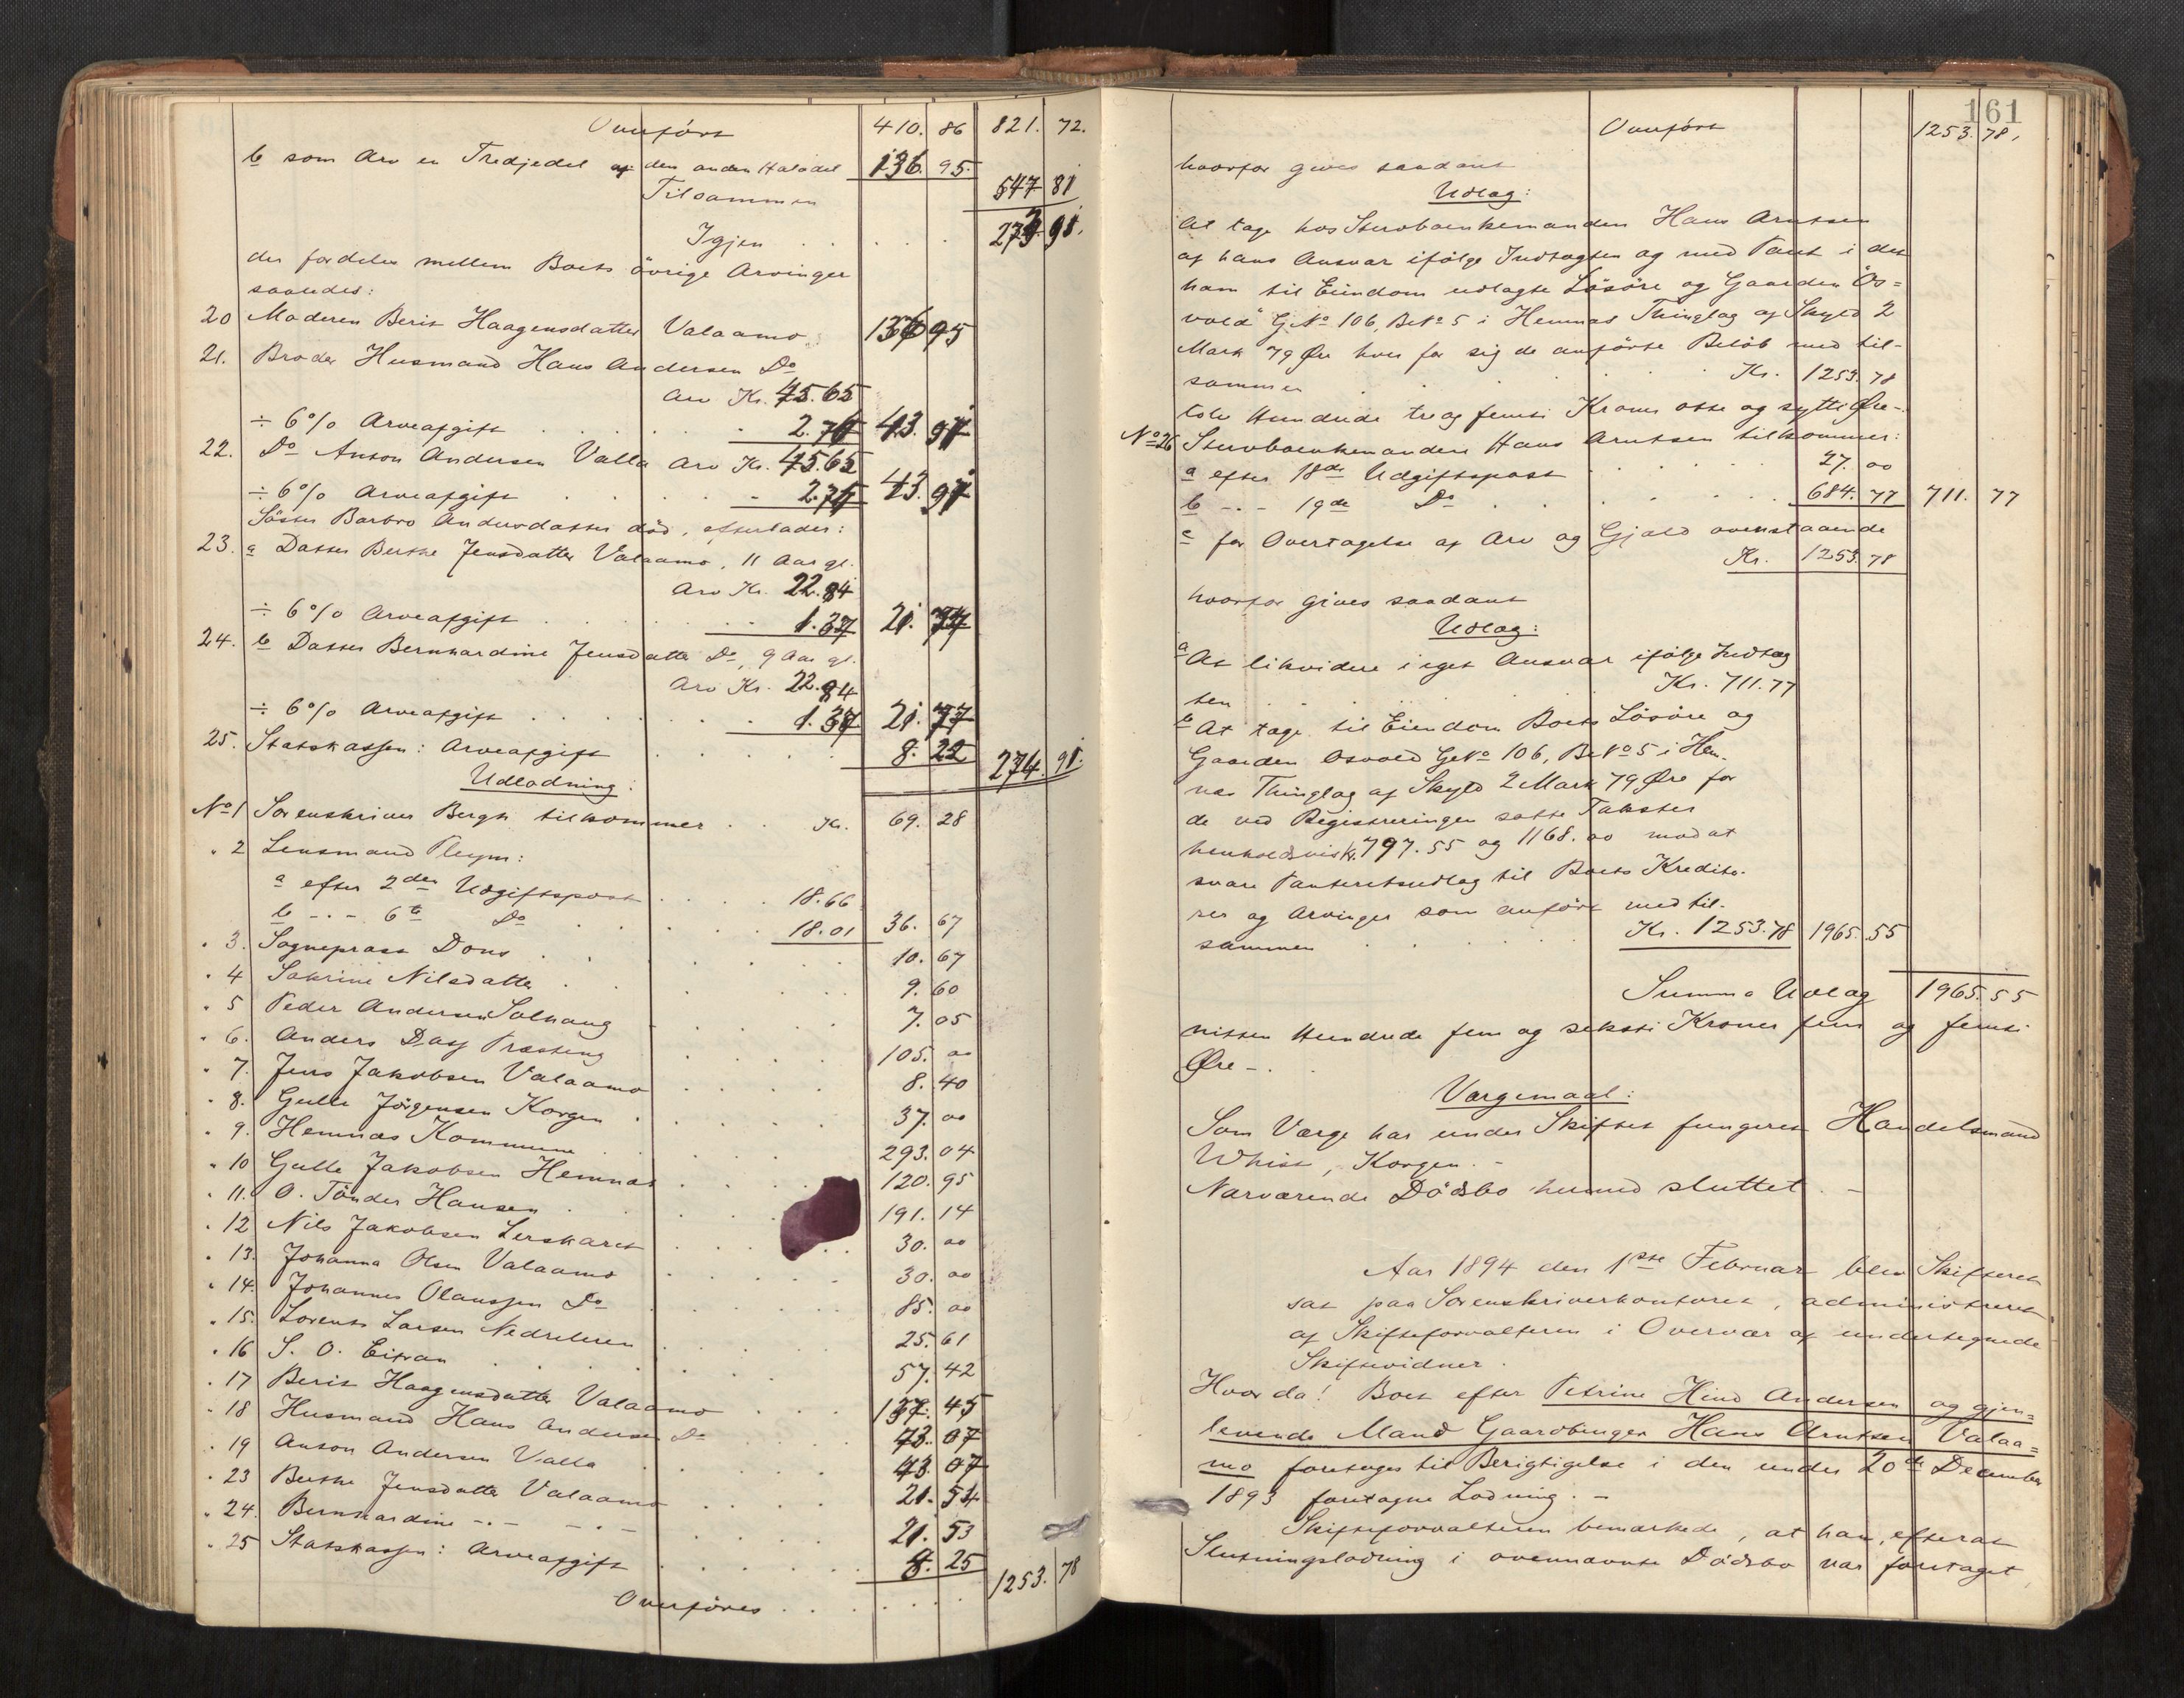 Overført 410. 86 821. 72.
b som Arv en Tredjedel af den anden Halvdel 136. 95.
Tilsammen 547 81
Igjen . . . . . 273. 91.
der fordeles mellem Boets øvrige Arvinger
saaledes:
20 Moderen Berit Haagensdatter Valaamo 136 95
21. Broder Husmand Hans Andersen Do
Arv Kr. 45.65
÷ 6% Arveafgift . . . . . 2.74 43. 91
22. Do Anton Andersen Valla Arv Kr. 45.65
÷ 6% Arveafgift . . . . . 2.74 43. 91
Søster Barbro Andersdatter død, efterlader:
23. a Datter Berthe Jensdatter Valaamo, 11 Aar gl.
Arv Kr. 22.84
÷ 6% Arveafgift . . . . . 1.37 21. 47
24. b Datter Bernhardine Jensdatter Do, 9 Aar gl.
Arv Kr. 22.84
÷ 6% Arveafgift . . . . . 1.37 21. 47
25. Statskassen: Arveafgift . . . . 8. 22 274. 91.
Udlodning:
No 1 Sorenskriver Bergh tilkommer . . Kr. 69. 28
" 2 Lensmand Pleym:
a efter 2den Udgiftspost . . . . 18.66
b -.- 6te Do . . . . 18.01 36. 67
" 3. Sogneprest Dons . . . . 10. 67
" 4 Sakrine Nilsdatter . . . . 9. 60
" 5 Peder Andersen Solhaug . . . . 7. 05
" 6. Anders Dass Præsteng . . . . 105. 00
" 7. Jens Jakobsen Valaamo . . . . 8. 40
" 8. Gulle Jörgensen Korgen . . . . 37. 00
" 9. Hemnæs Kommune . . . . 293. 04
" 10 Gulle Jakobsen Hemnæs . . . . 120. 95
" 11. O. Tönder Hansen . . . . 191. 14
" 12 Nils Jakobsen Lerskaret . . . . 30. 00
" 13. Johanna Olsen Valaamo . . . . 30. 00
" 14. Johannes Olaussen Do . . . . 85. 00
" 15. Lorents Larsen Nedreleren . . . . 25. 61
" 16 S. O. Eitran . . . . 57. 42
" 17 Berit Haagensdatter Valaamo . . . 137. 45
" 18 Husmand Hans Andersen Do . . . 43. 07
" 19 Anton Andersen Valla . . . . 43. 07
" 23 Berthe Jensdatter Valaamo . . . . 21. 54
" 24. Bernhardine -.- -.- . . . 21. 53
" 25 Statskassen: Arveafgift . . . . 8. 25 1253. 78
Overføres . . . . . .
161
Overført 1253. 78.
hvorfor gives saadant
Udlag:
At tage hos Stervboenkemanden Hans Arntsen
af hans Ansvar ifølge Indtægten og med Pant i det
ham til Eiendom udlagte Løsöre og Gaarden Os=
vold GNo 106, BNo 5 i Hemnæs Thinglag af Skyld 2
Mark 79 Øre hver for sig de anførte Beløb med til-
sammen . . . . . . . Kr. 1253. 78
tolv Hundrede tre og femti Kroner otte og sytti Øre-.
No 26 Stervboenkemanden Hans Arntsen tilkommer:
a efter 18de Udgiftspost . . . . . 27. 00
b -.- 19de Do . . . . . . 684. 77 711. 77
c for Overtagelse af Arv og Gjæld ovenstaaende
Kr. 1253. 78
hvorfor gives saadant
Udlag:
a At likvidere i eget Ansvar ifølge Indtæg
ten . . . . Kr. 711.77
b At tage til Eiendom Boets Løsöre og
Gaarden Osvold GNo 106, BNo 5 i Hem.
næs Thinglag af Skyld 2 Mark 79 Øre for
de ved Registreringen satte Takster
henholdsvis Kr. 797.55 og 1168.00 mod at
svare Panteretsudlæg til Boets Kredito-
rer og Arvinger som anført med til-
sammen . . . . . Kr. 1253.78 1965. 55
Summa Udlæg 1965. 55
nitten Hundrede fem og seksti Kroner fem og femti
Øre -.
Værgemaal:
Som Værge har under Skiftet fungeret Handelsmand
Whist, Korgen. -
Nærværende Dødsbo hermed sluttet. -
Aar 1894 den 1ste Februar blev Skifteret
sat paa Sorenskriverkontoret, administreret
af Skifteforvalteren i Overvær af undertegnede
Skiftevidner.
Hvor da! Boet efter Petrine Hind Andersen og gjen=
levende Mand Gaardbruger Hans Arntsen Valaa=
mo foretoges til Berigtigelse i den under 20de December
1893 foretagne Lodning. -
Skifteforvalteren bemærkede, at han, efterat
Slutningslodning i ovennævnte Dødsbo var foretaget,